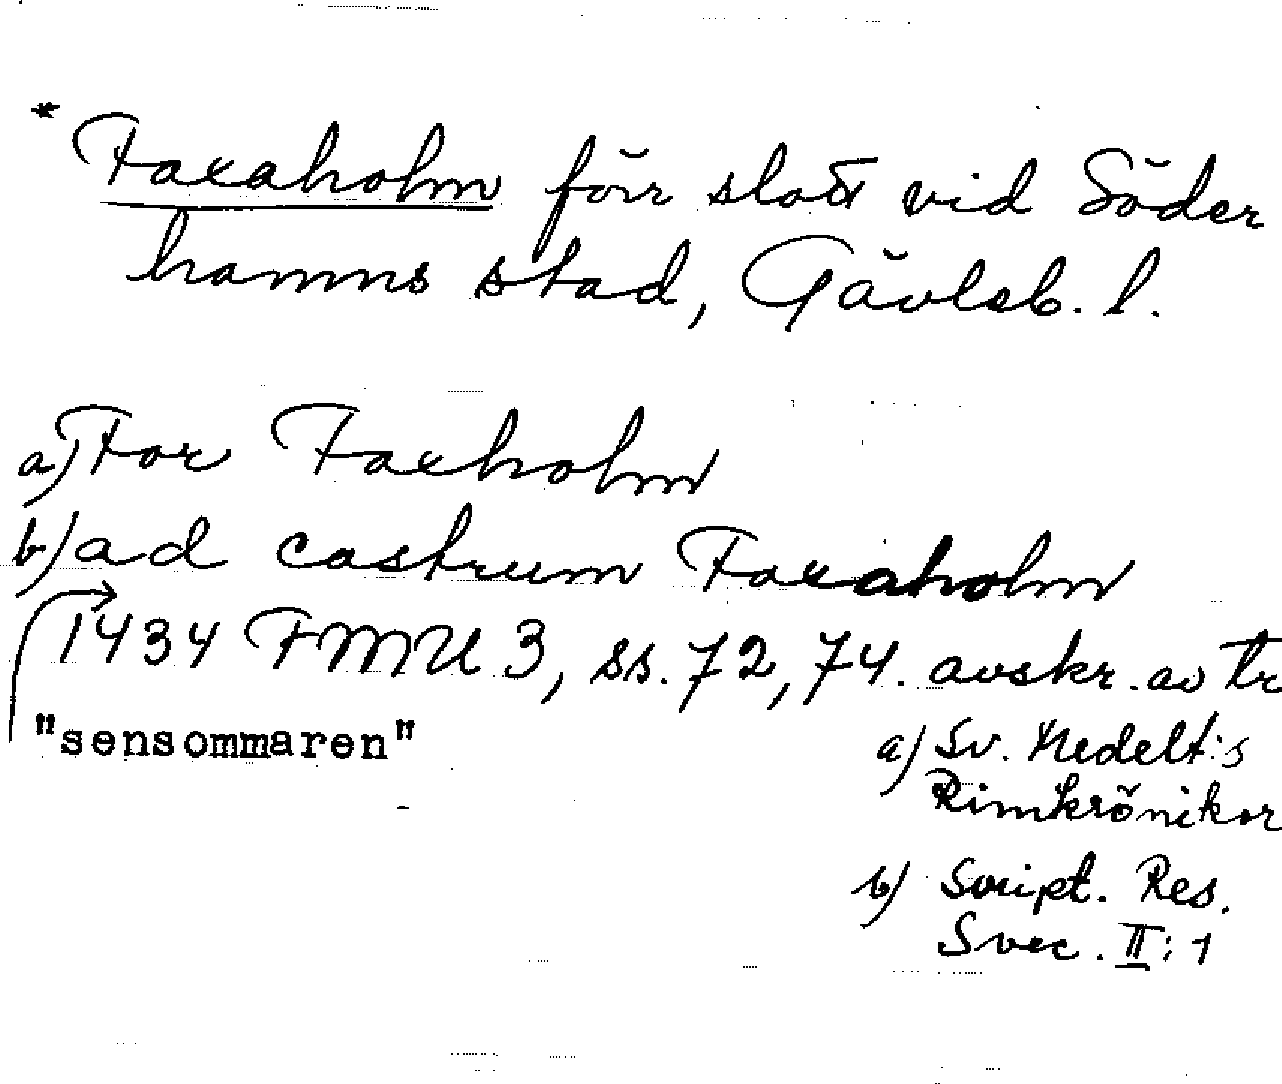 * Faxaholm förr slott vid Söder
hamns stad, Gävleb. l.
a) For Faxholm
b) ad castrum Faxaholm
1434 FMU 3, ss. 72, 74. avskr. av tr
"sensommaren"
a) Sv. Medelt:s
Rimkrönikor
b) Script. Res.
Svec. II:1